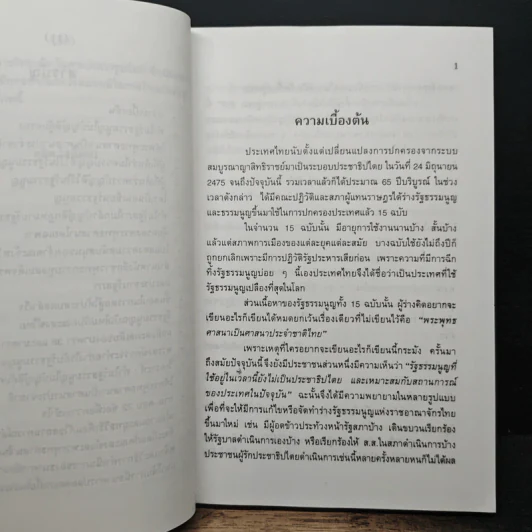 1
ความเบื้องต้น
ประเทศไทยนับตั้งแต่เปลี่ยนแปลงการปกครองจากระบบ
สมบูรณาญาสิทธิราชย์มาเป็นระบอบประชาธิปไตย ในวันที่ 24 มิถุนายน
2475 จนถึงปัจจุบันนี้ รวมเวลาแล้วก็ได้ประมาณ 65 ปีบริบูรณ์ ในช่วง
เวลาดังกล่าว ได้มีคณะปฏิวัติและสภาผู้แทนราษฎรได้ร่างรัฐธรรมนูญ
และธรรมนูญขึ้นมาใช้ในการปกครองประเทศแล้ว 15 ฉบับ
ในจำนวน 15 ฉบับนั้น มีอายุการใช้งานนานบ้าง สั้นบ้าง
แล้วแต่สภาพการเมืองของแต่ละยุคแต่ละสมัย บางฉบับใช้ยังไม่ถึงปีก็
ถูกยกเลิกเพราะมีการปฏิวัติรัฐประหารเสียก่อน เพราะความที่มีการฉีก
ทิ้งรัฐธรรมนูญบ่อย ๆ นี้เองประเทศไทยจึงได้ชื่อว่าเป็นประเทศที่ใช้
รัฐธรรมนูญเปลืองที่สุดในโลก
ส่วนเนื้อหาของรัฐธรรมนูญทั้ง 15 ฉบับนั้น ผู้ร่างคิดอยากจะ
เขียนอะไรก็เขียนได้หมดยกเว้นเรื่องเดียวที่ไม่เขียนไว้คือ "พระพุทธ
ศาสนาเป็นศาสนาประจำชาติไทย"
เพราะเหตุที่ใครอยากจะเขียนอะไรก็เขียนนี้กระมัง ครั้นมา
ถึงสมัยปัจจุบันนี้จึงยังมีประชาชนส่วนหนึ่งมีความเห็นว่า "รัฐธรรมนูญที่
ใช้อยู่ในเวลานี้ยังไม่เป็นประชาธิปไตย และเหมาะสมกับสถานการณ์
ของประเทศไทยในปัจจุบัน" ฉะนั้นจึงได้มีความพยายามในหลายรูปแบบ
เพื่อที่จะให้มีการแก้ไขหรือจัดทำร่างรัฐธรรมนูญแห่งราชอาณาจักรไทย
ขึ้นมาใหม่ เช่น มีผู้อดข้าวประท้วงหน้ารัฐสภาบ้าง เดินขบวนเรียกร้อง
ให้รัฐบาลดำเนินการเองบ้าง หรือเรียกร้องให้ ส.ส.ในสภาดำเนินการบ้าง
ประชาชนผู้รักประชาธิปไตยดำเนินการเช่นนี้หลายครั้งหลายหนก็ไม่ได้ผล